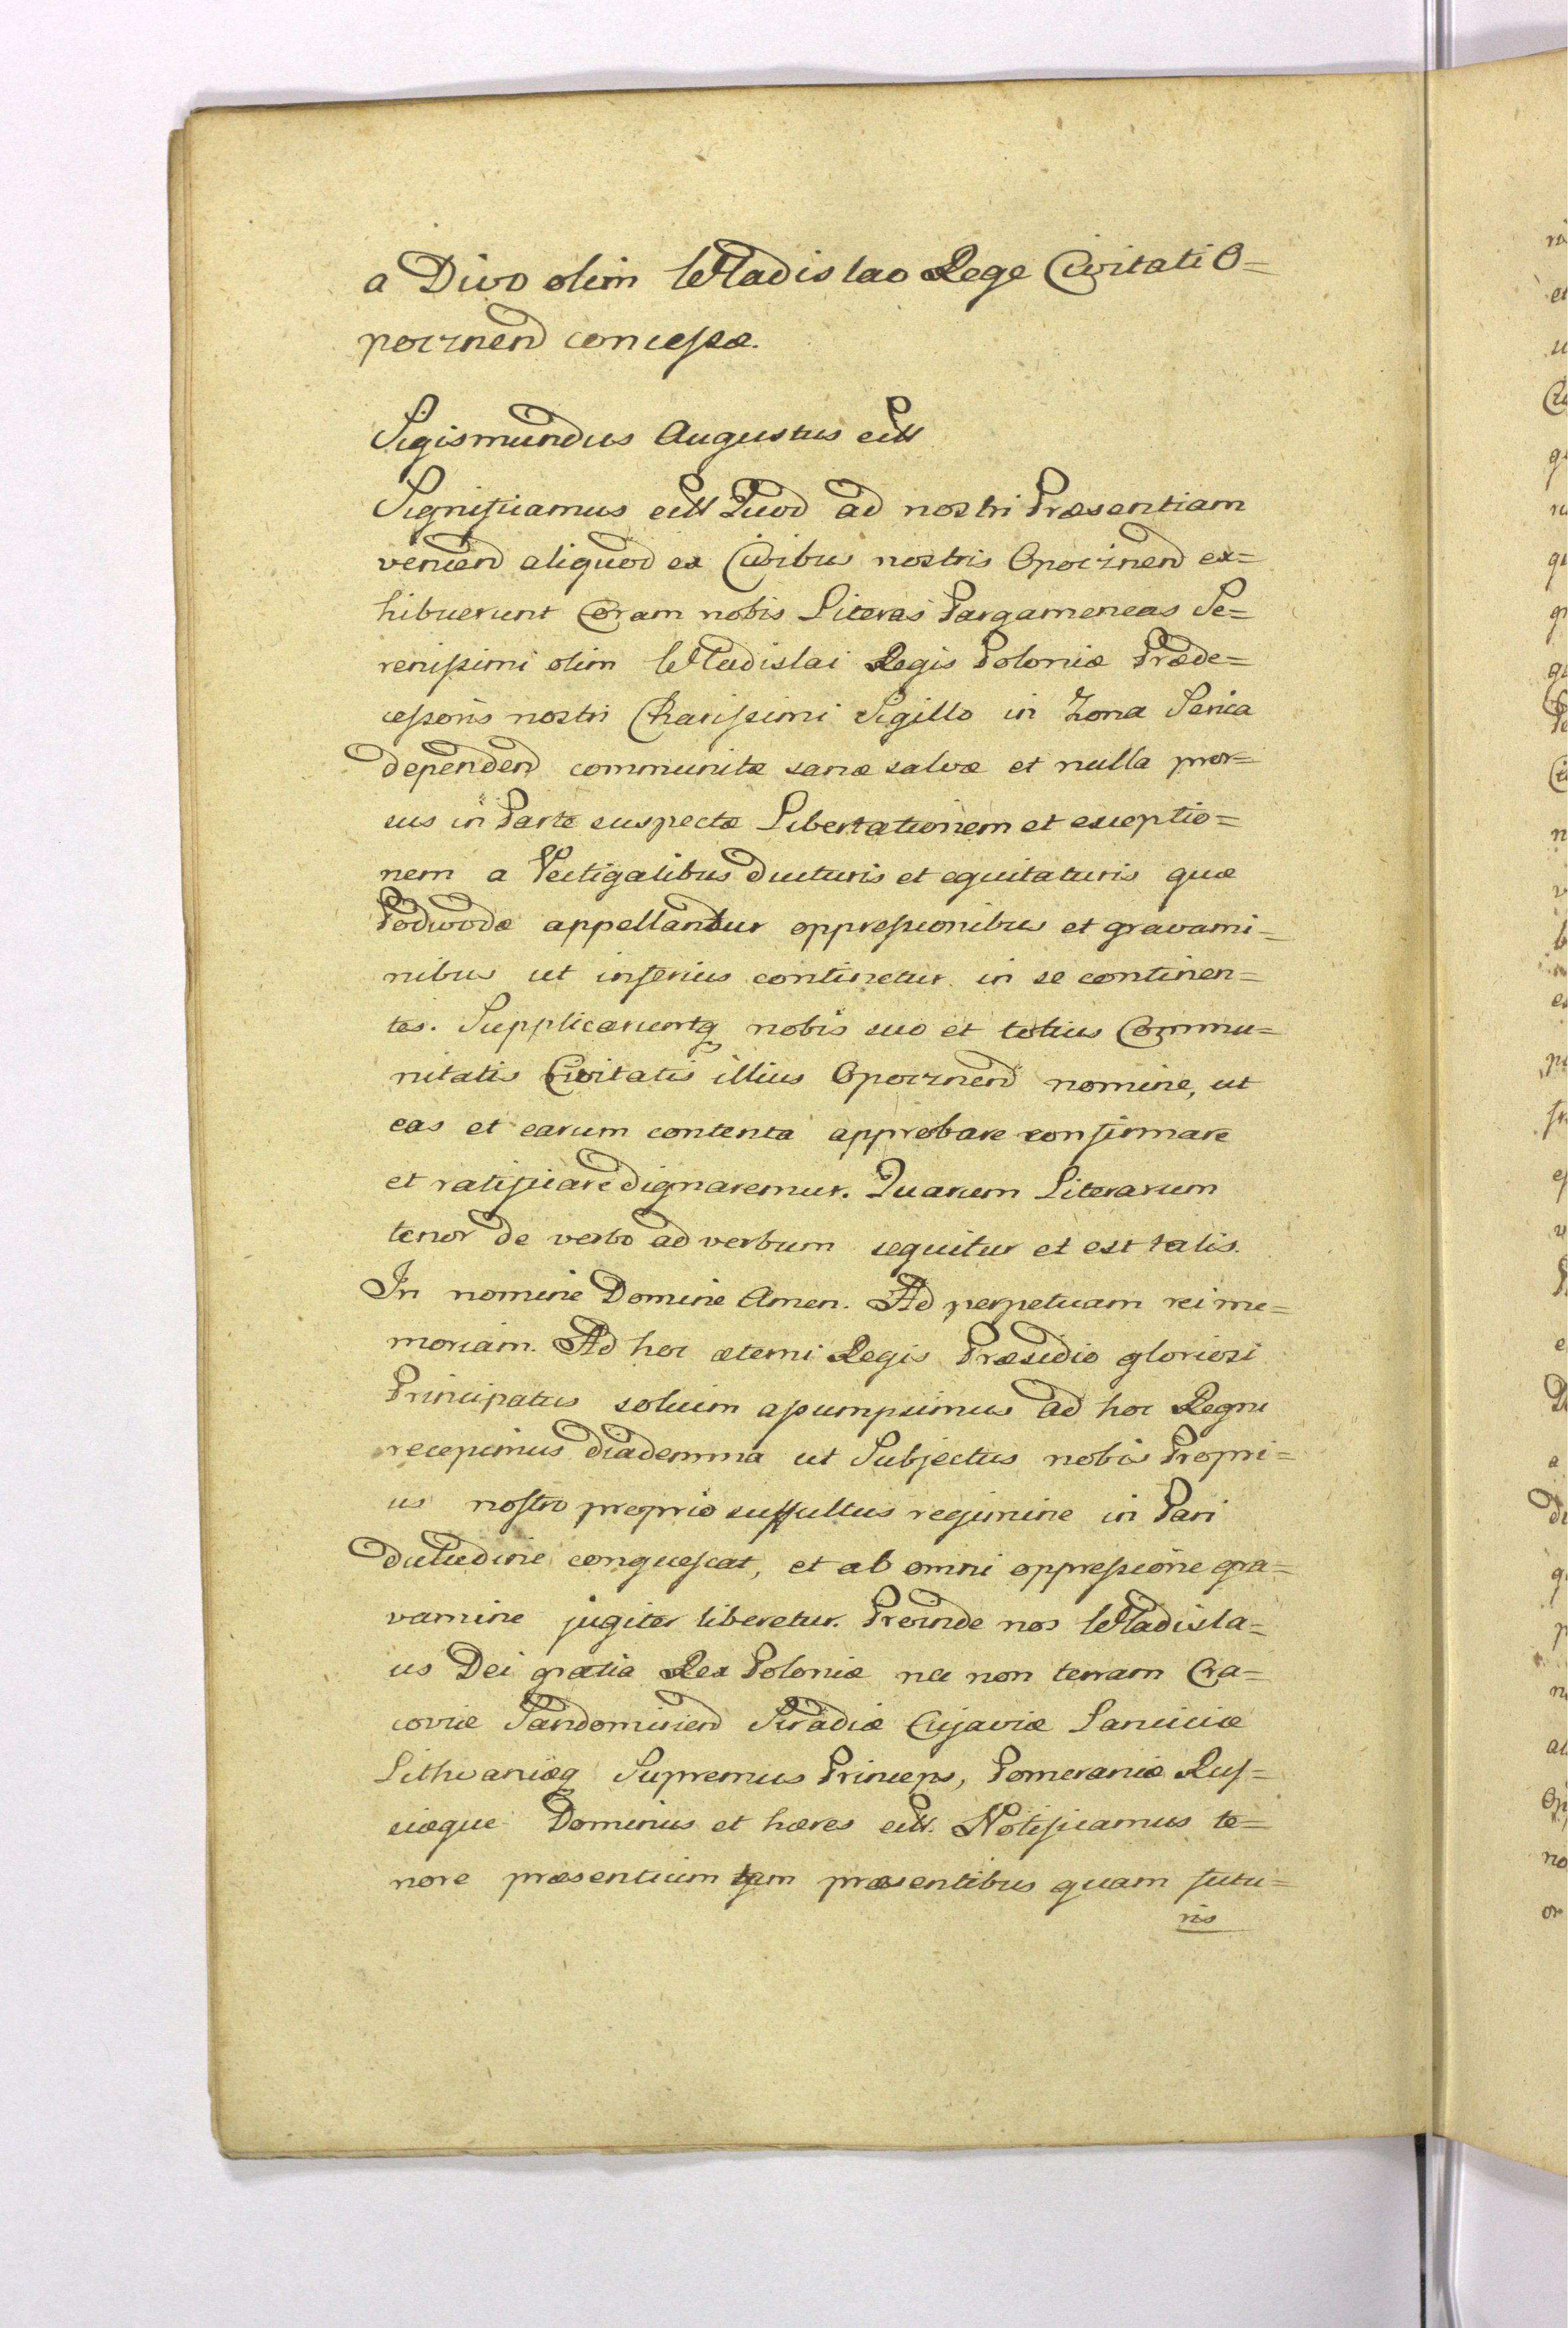 a Divo olim Wladislao Rege Civitati O=
pocznend concessæ.
Sigismundus Augustus ett
Significamus ett Quod ad nostri Præsentiam
veniend aliquod ex Civibus nostris Opocznend ex=
hibuerunt Coram nobis Literas Pargameneas Se=
renissimi olim Wladislai Regis Poloniæ Præde=
cessoris nostri Charissimi Sigillo in Zona Serica
dependend communitæ sanæ salvæ et nulla pror=
sus in Parte suspectæ Libertationem et exceptio=
nem a Vectigalibus ducturis et equitaturis quæ
Podwodæ appellantur oppressionibus et gravami=
nibus ut inferius continetur in se continen=
tes. Supplicaruntq nobis suo et totius Commu=
nitatis Civitatis illius Opocznend nomine, ut
eas et earum contenta approbare confirmare
et ratificare dignaremur. Quarum Literarum
tenor de verbo ad verbum sequitur et est talis.
In nomine Domine Amen. Ad perpetuam rei me=
moriam. Ad hoc æterni Regis Præsidio gloriosi
Principatus solium assumpsimus ad hoc Regni
recepimus diademma ut Subjectus nobis Propri=
us nostro proprio suffultus regimine in Pari
dulcidine conquescat, et ab omni oppressione gra=
vamine jugiter liberetur. Proinde nos Wladisla=
us Dei gratia Rex Poloniæ nec non terram Cra=
coviæ Sandomiriend Siradiæ Cujaviæ Lanciciæ
Lithvaniæq Supremus Princeps, Pomeraniæ Rus=
siæque Dominus et hæres ett. Notificamus te=
nore præsentium tam præsentibus quam futu=
ris